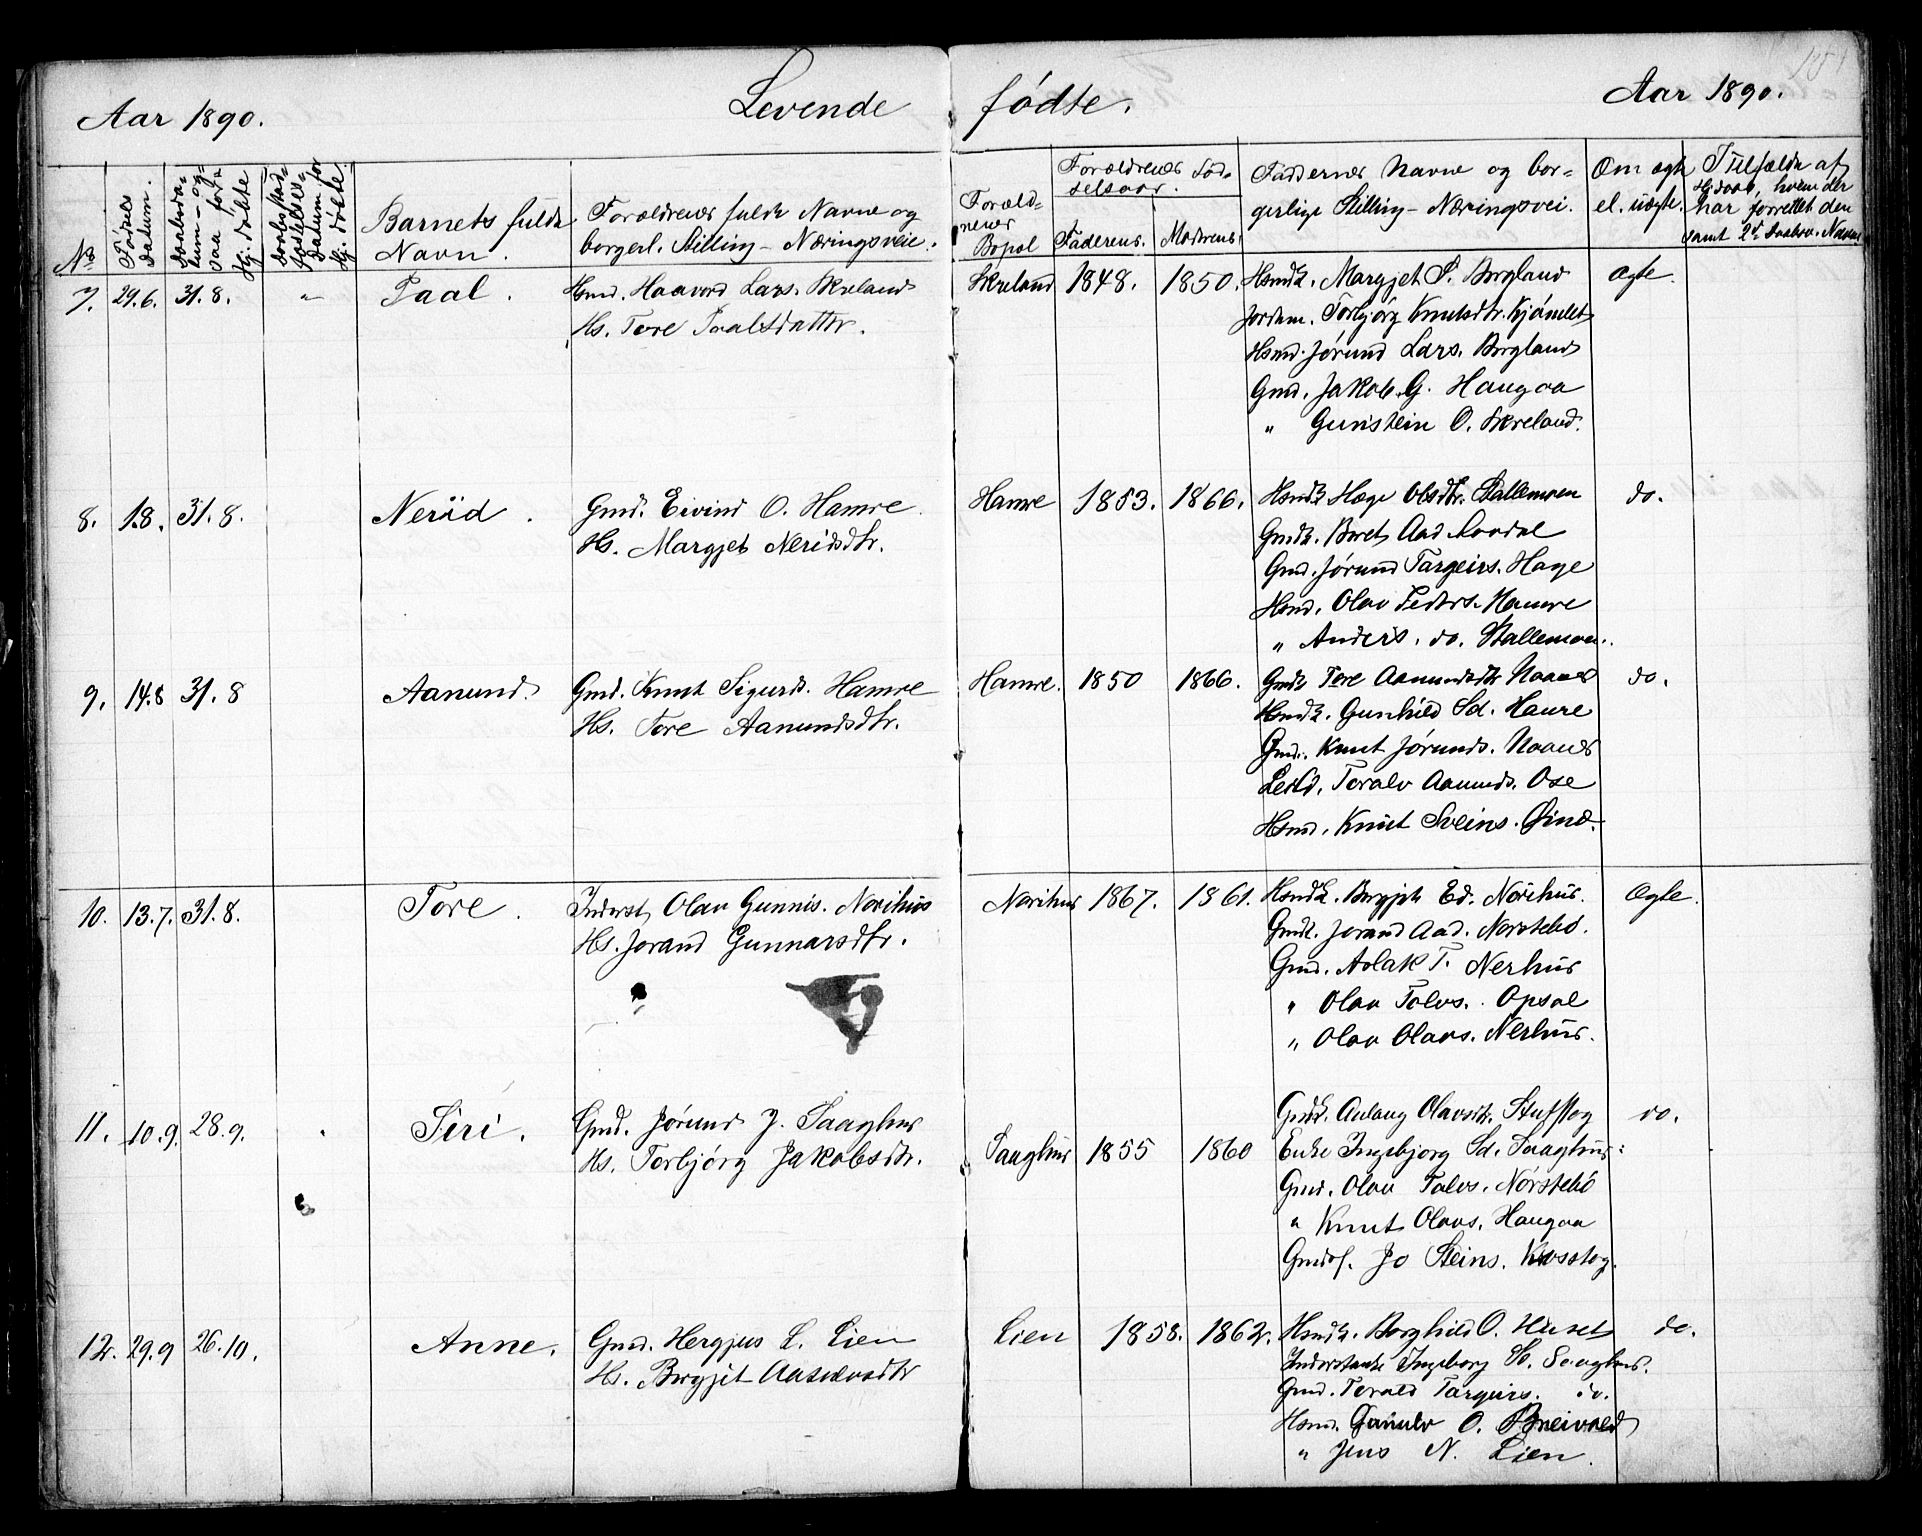 Aar 1890.
Levende
fødte.
Aar 1890.
No
Fødsels Datum.
Barnets fulde
Navn.
Forældrenes fulde Navne og
borgerl. Stilling - Næringsveie.
Foræld-
nenes
Bopæl
Forældrenes Fød-
selsaar.
Faderens.
Moderens.
Faddernes Navne og bor-
gerlige Stilling - Næringsvei.
Om ægte
el. uægte.
Tilfælde af
Hj.daab, hvem der
har forrettet den
samt
7. 29.6. 31.8. " Paal. Gmd. Haavord Lars. Skreland
Hs. Tore Paalsdatter.
Skreland 1848. 1850. Hsmdk. Margjet P. Bergland Ægte.
Jordem. Torbjørg Knutsdtr. Kjømlet
Hsmd. Jørund Lars. Bergland
Gmd. Jakob G. Haugaa
" Gunstein O. Skreland.
8. 1.8. 31.8. Nerid. Gmd. Eivind O. Hamre
Hs. Margjet Neridsdtr.
Hamre 1853. 1866. Hsmdk Hæge Olsdtr. Stallemoen do.
Gmdk. Beret Aad.
Gmd. Jørund Targeirs. Hage
Hsmd. Olav Peders. Hamre
" Anders. do. Stallemoen.
9. 14.8 31.8 Aanund. Gmd. Knut Sigurds. Hamre
Hs. Tore Aanundsdtr.
Hamre. 1850 1866. Gmdk Tore Aanundsdtr Naanes do.
Hsmdk. Gunhild Sd. Hamre
Gmd. Knut Jørunds. Naanes
Leild. Toralv Aanunds. Ose
Hsmd. Knut Sveins.
10. 13.7. 31.8. Tore. Inderst Olav Gunnis. Nerihus
Hs. Jorand Gunnarsdtr.
Nerihus 1867. 1861. Hsmdk. Bergjit Ed. Nerihus. Ægte.
Gmdk. Jorand Aad. Nørstebø.
Gmd. Aslak T. Nerhus
" Olav Talvs. Opsal
" Olav Olavs. Nerhus.
11. 10.9. 28.9. Siri. Gmd. Jørund J. Taaghus
Hs. Torbjørg Jakobsdtr.
Gmdk. Aulaug Olavsdtr. Stufstog do.
Taaghus 1855 1860 Enke Ingebjørg Sd. Taaghus
Gmd. Olav Talvs. Nørstebø
" Knut Olavs. Haugaa
Gmdsf. Jo Steins. Krosstog.
12. 29.9 26.10. Anne. Gmd. Hergjus L. Lien
Hs. Bergjit
Lien 1858. 1862. Hsmdk. Borghild O. Huset do.
Inderstenke Ingeborg
Gmd. Torald Targeirs. do.
Hsmd. Gunulv O. Breivald
" Jens N. Lien.